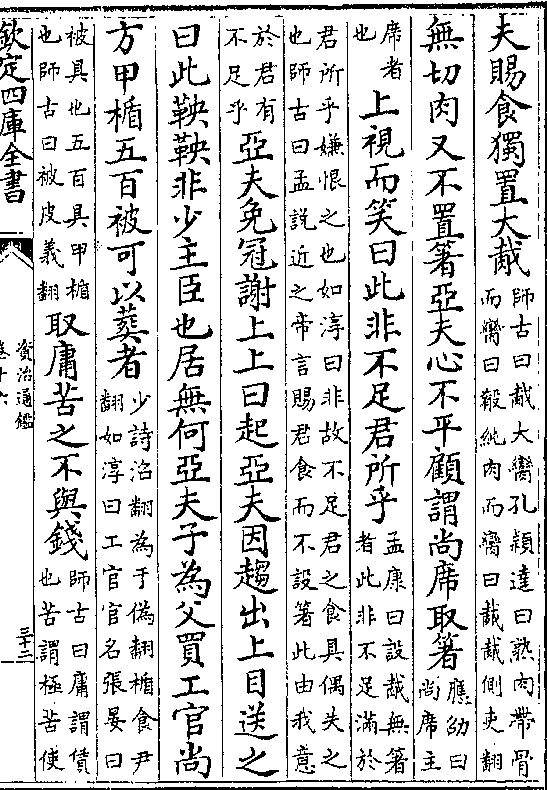 夫賜食獨置大胾師古曰胾大臠孔頴達曰熟肉帶骨而臠曰殽純肉而臠曰胾胾側吏翻
無切肉又不置箸亞夫心不平顧謂尚席取箸應劭曰尚席主
席者也上視而笑曰此非不足君所乎孟康曰設胾無箸者此非不足滿於
君所乎嫌恨之也如淳曰非故不足君之食具偶失之也師古曰孟説近之帝言賜君食而不設箸此由我意
於君有不足乎亞夫免冠謝上上曰起亞夫因趨出上目送之
曰此鞅鞅非少主臣也居無何亞夫子為父買工官尚
方甲楯五百被可以葬者少詩沼翻為于偽翻楯食尹翻如淳曰工官官名張晏曰
被具也五百具甲楯也師古曰被皮義翻取庸苦之不與錢師古曰庸謂賃也苦謂極苦使
欽定四庫全書
資治通鑑
卷十六
三十二